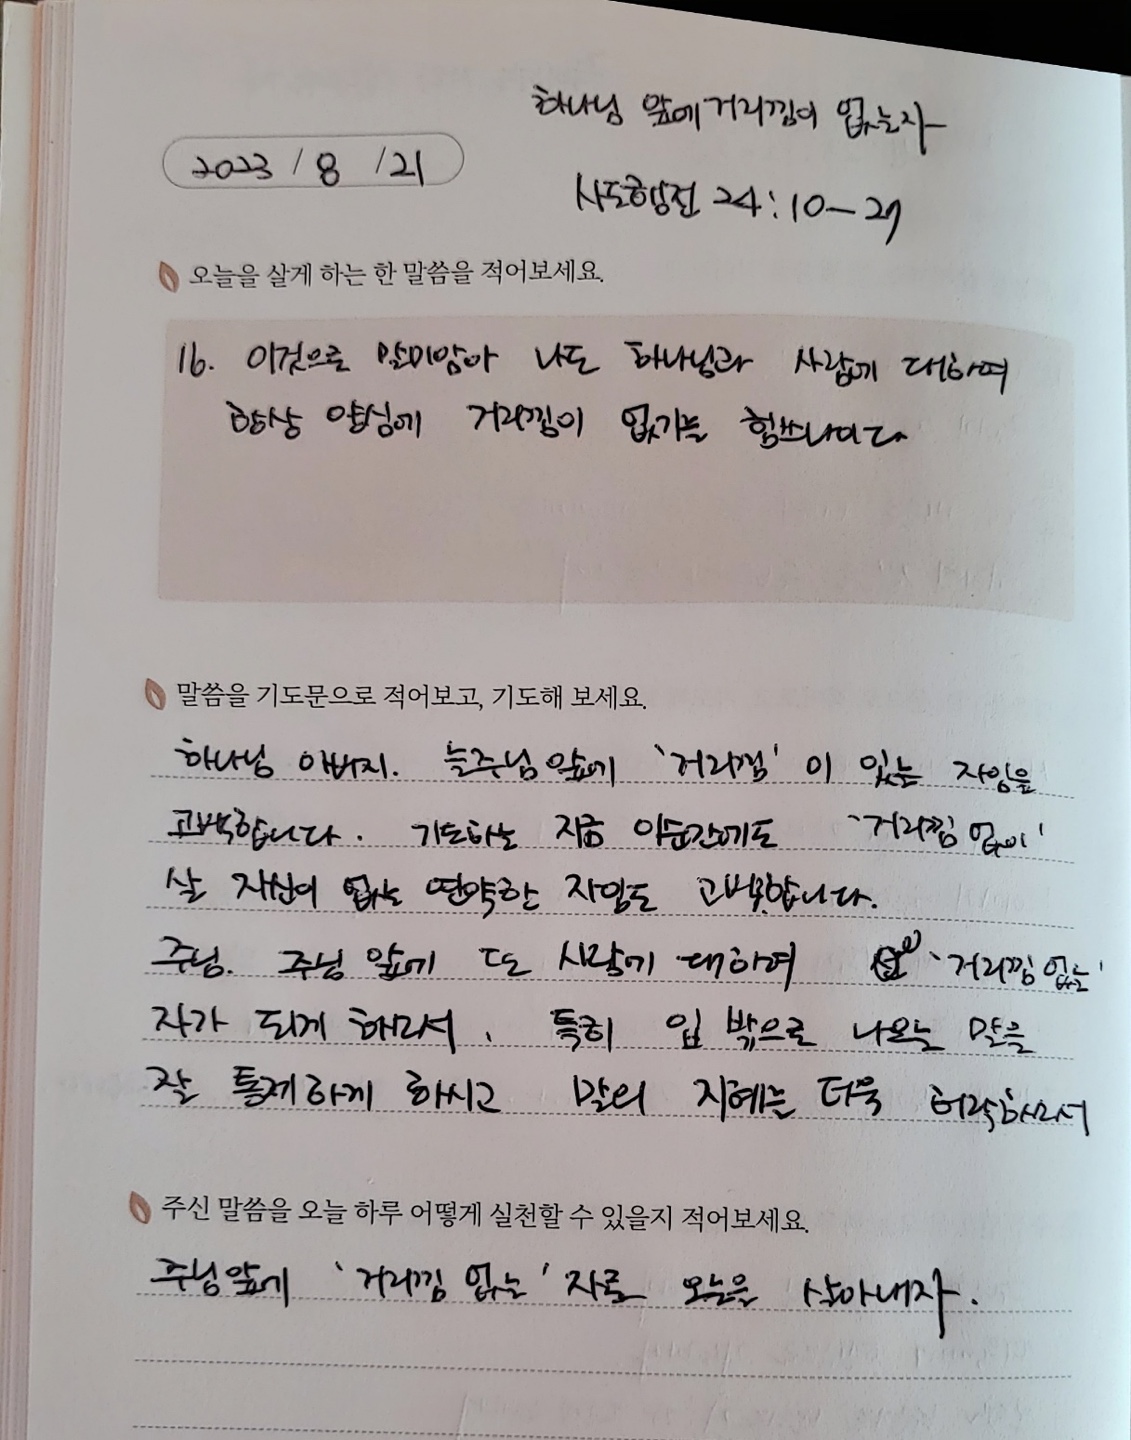 하나님 앞에 거리낌이 없는자
2023 / 8 / 21
사도행전 24:10-27
오늘을 살게 하는 한 말씀을 적어보세요.
16. 이것으로 말미암아 나도 하나님과 사람에 대하여
항상 양심에 거리낌이 없기를 힘쓰나이다
말씀을 기도문으로 적어보고, 기도해 보세요.
하나님 아버지. 늘 주님 앞에 '거리낌'이 있는 자임을
고백합니다. 기도하는 지금 이순간에도 '거리낌 없이'
살 자신이 없는 연약한 자임도 고백합니다.
주님. 주님 앞에 또 사람에 대하여 '거리낌 없는'
자가 되게 하소서. 특히 입 밖으로 나오는 말을
잘 통제하게 하시고 말의 지혜는 더욱 허락하소서
주신 말씀을 오늘 하루 어떻게 실천할 수 있을지 적어보세요.
주님앞에 '거리낌 없는' 자로 오늘을 살아내자.